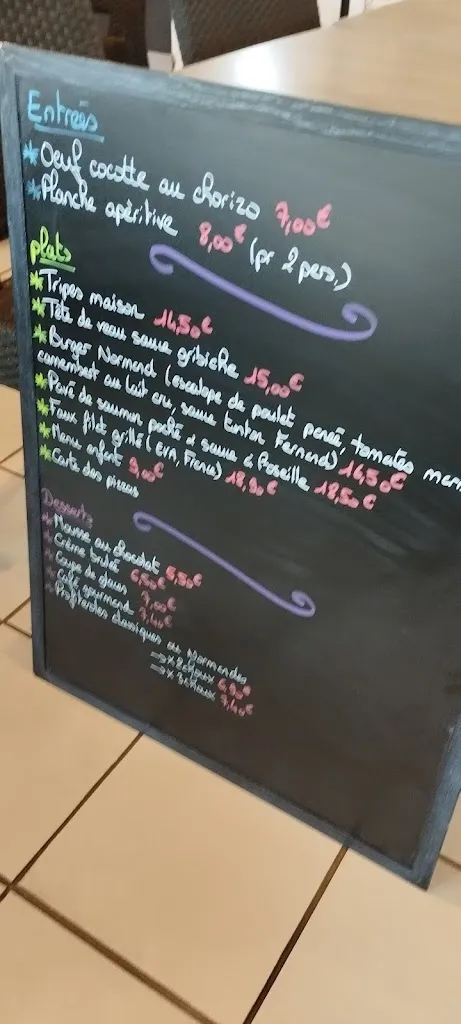 Entrées
* Oeuf cocotte au chorizo 7,00€
* Planche apéritive 8,00€ (pr 2 pers.)
plats
* Tripes maison 14,50€
* Tête de veau sauce gribiche 15,00€
* Burger Normand (escalope de poulet panée, tomates
camembert au lait cru, sauce Tonton Fernand) 16,50€
* Pavé de saumon poché et sauce à l'oseille 18,50€
* Faux filet grillé ( 18,90€
* Menu enfant 9,00€
* Carte des pizzas
Desserts
* Mousse au chocolat 6,50€
* Crème brulée 6,50€
* Coupe de glaces 7,00€
* Café gourmand 7,40€
* Profiteroles classiques ou Normandes
→ x 2 choux 6,90€
→ x 3 choux 7,40€